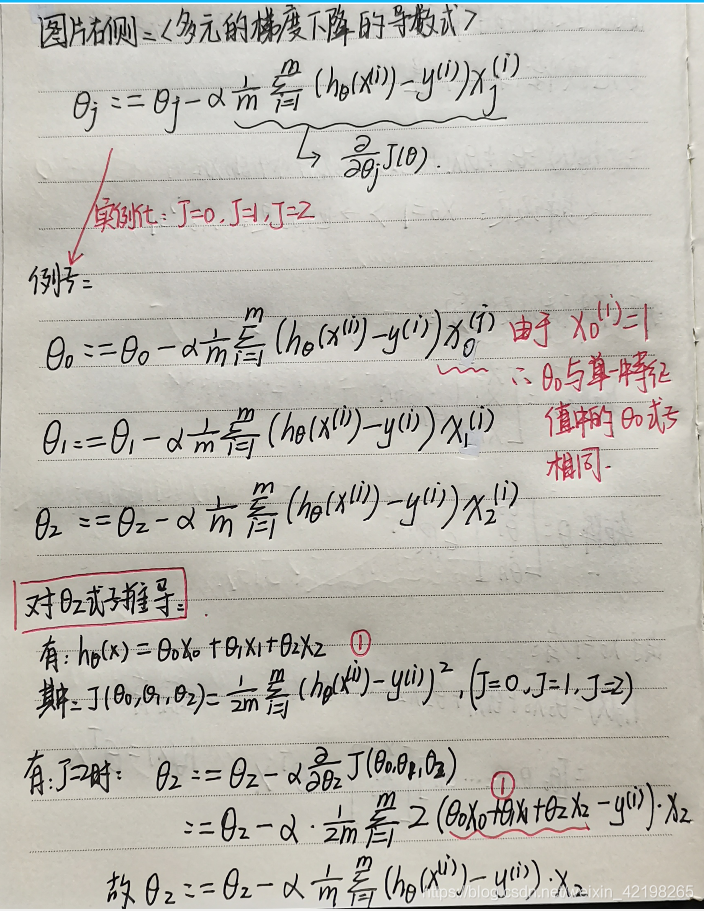 图片右侧:<多元的梯度下降的导数式>
θj := θj - α 1/m Σ_{i=1}^{m} (hθ(x^(i)) - y^(i)) xj^(i)
↳ ∂/∂θj J(θ).
实例化: J=0, J=1, J=2
例子:
θ0 := θ0 - α 1/m Σ_{i=1}^{m} (hθ(x^(i)) - y^(i)) x0^(i)
由于 x0^(i) = 1
∴ θ0与单一特征
值中的θ0式子
相同.
θ1 := θ1 - α 1/m Σ_{i=1}^{m} (hθ(x^(i)) - y^(i)) x1^(i)
θ2 := θ2 - α 1/m Σ_{i=1}^{m} (hθ(x^(i)) - y^(i)) x2^(i)
对θ2式子推导:
有: hθ(x) = θ0x0 + θ1x1 + θ2x2 ①
其中: J(θ0,θ1,θ2) = 1/2m Σ_{i=1}^{m} (hθ(x^(i)) - y^(i))^2, (J=0, J=1, J=2)
有:J=2时: θ2 := θ2 - α ∂/∂θ2 J(θ0,θ1,θ2)
①
:= θ2 - α · 1/2m Σ_{i=1}^{m} 2 (θ0x0+θ1x1+θ2x2 - y^(i)) · x2
故 θ2 := θ2 - α 1/m Σ_{i=1}^{m} (hθ(x^(i)) - y^(i)) · x2
https://blog.csdn.net/weixin_42198265